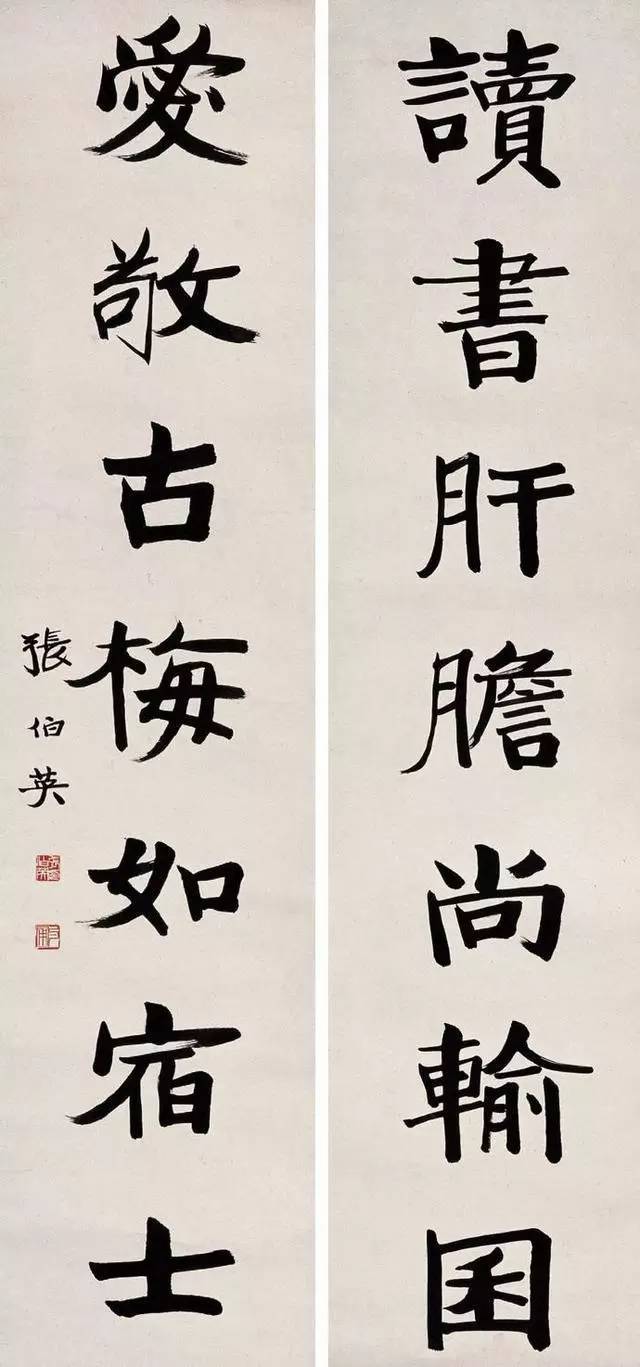 讀書肝膽尚輪囷
愛敬古梅如宿士
張伯英